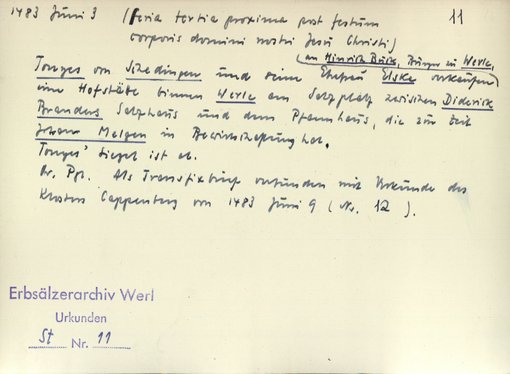 1483 Juni 3 (feria tertia proxima post festum 11
corporis domini nostri Jesu Christi)
(an Hinrich Bürk, Bürger zu Werle,
Tonyes von Schedingen und seine Ehefrau Elske verkaufen)
eine Hofstätte binnen Werle am Salzplatz zwischen Diderick
Branders Salzhaus und dem Pfannhaus, die zur Zeit
Johann Melgen in Bewirtschaftung hat.
Tonyes' Siegel ist ab.
Or. Pgt. Als Transfixbrief verbunden mit Urkunde des
Klosters Cappenberg von 1483 Juni 9 (Nr. 12).
Erbsälzerarchiv Werl
Urkunden
St Nr. 11